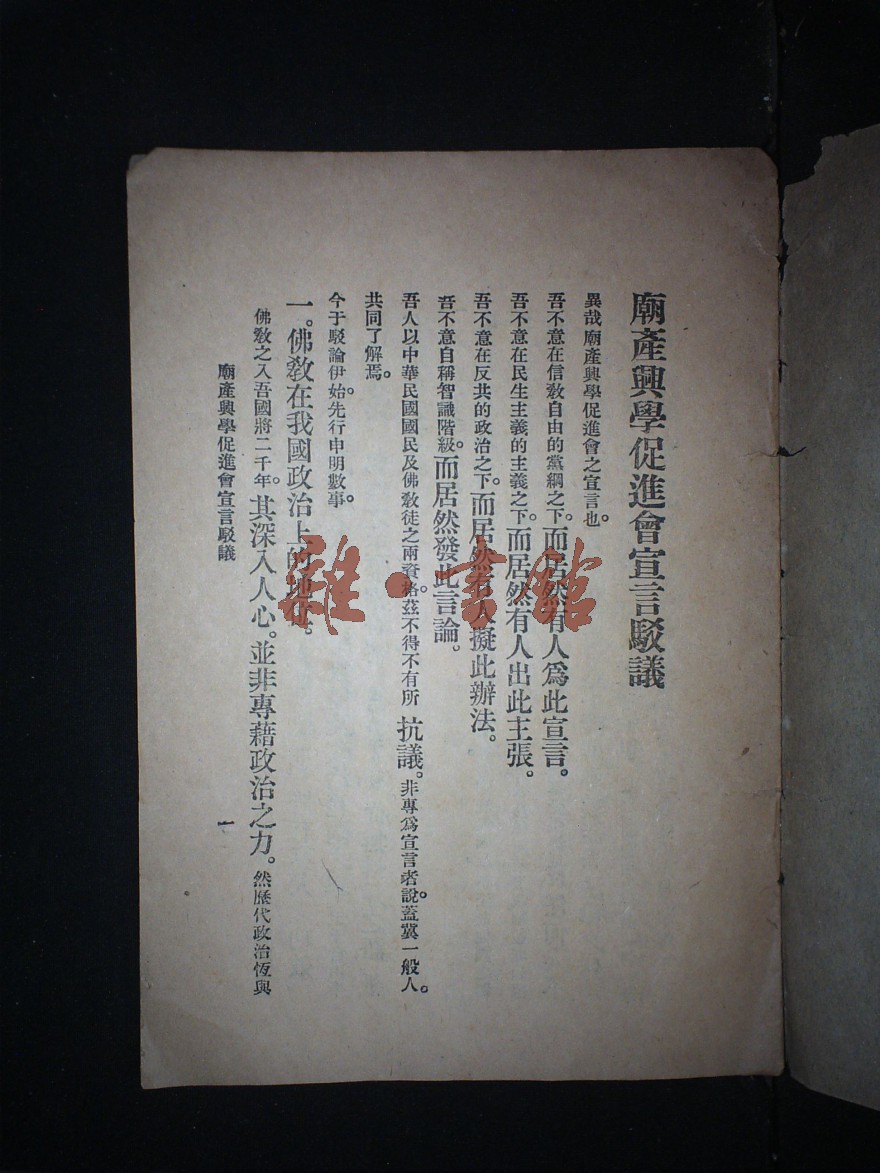 廟產興學促進會宣言駁議
異哉廟產興學促進會之宣言也。
吾不意在信敎自由的黨綱之下。而居然有人爲此宣言。
吾不意在民生主義的主義之下。而居然有人出此主張。
吾不意在反共的政治之下。而居然有人擬此辦法。
吾不意自稱智識階級。而居然發此言論。
吾人以中華民國國民及佛敎徒之兩資格。茲不得不有所抗議。非專爲宣言者說。蓋冀一般人。
共同了解焉。
今于駁論伊始。先行申明數事。
一。佛敎在我國政治上的地位。
佛敎之入吾國將二千年。其深入人心。並非專藉政治之力。然歷代政治恆與
廟產興學促進會宣言駁議
一
雜·書館